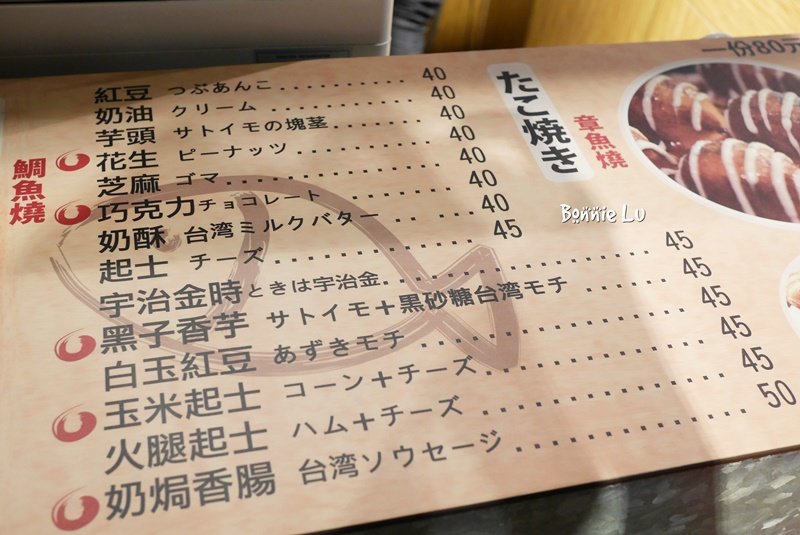 鯛魚燒
紅豆 つぶあんこ.......... 40
奶油 クリーム .......... 40
芋頭 サトイモの塊茎....... 40
花生 ピーナッツ .......... 40
芝麻 ゴマ.......... 40
巧克力 チョコレート .......... 40
奶酥 台湾ミルクバター .... 40
起士 チーズ .......... 45
宇治金時 ときは宇治金.......... 45
黑子香芋 サトイモ+黒砂糖台湾モチ ....... 45
白玉紅豆 あずきモチ .......... 45
玉米起士 コーン+チーズ.......... 45
火腿起士 ハム+チーズ .......... 45
奶焗香腸 台湾ソウセージ .......... 50
たこ焼き
章魚燒
一份80元
Bonnie Lu